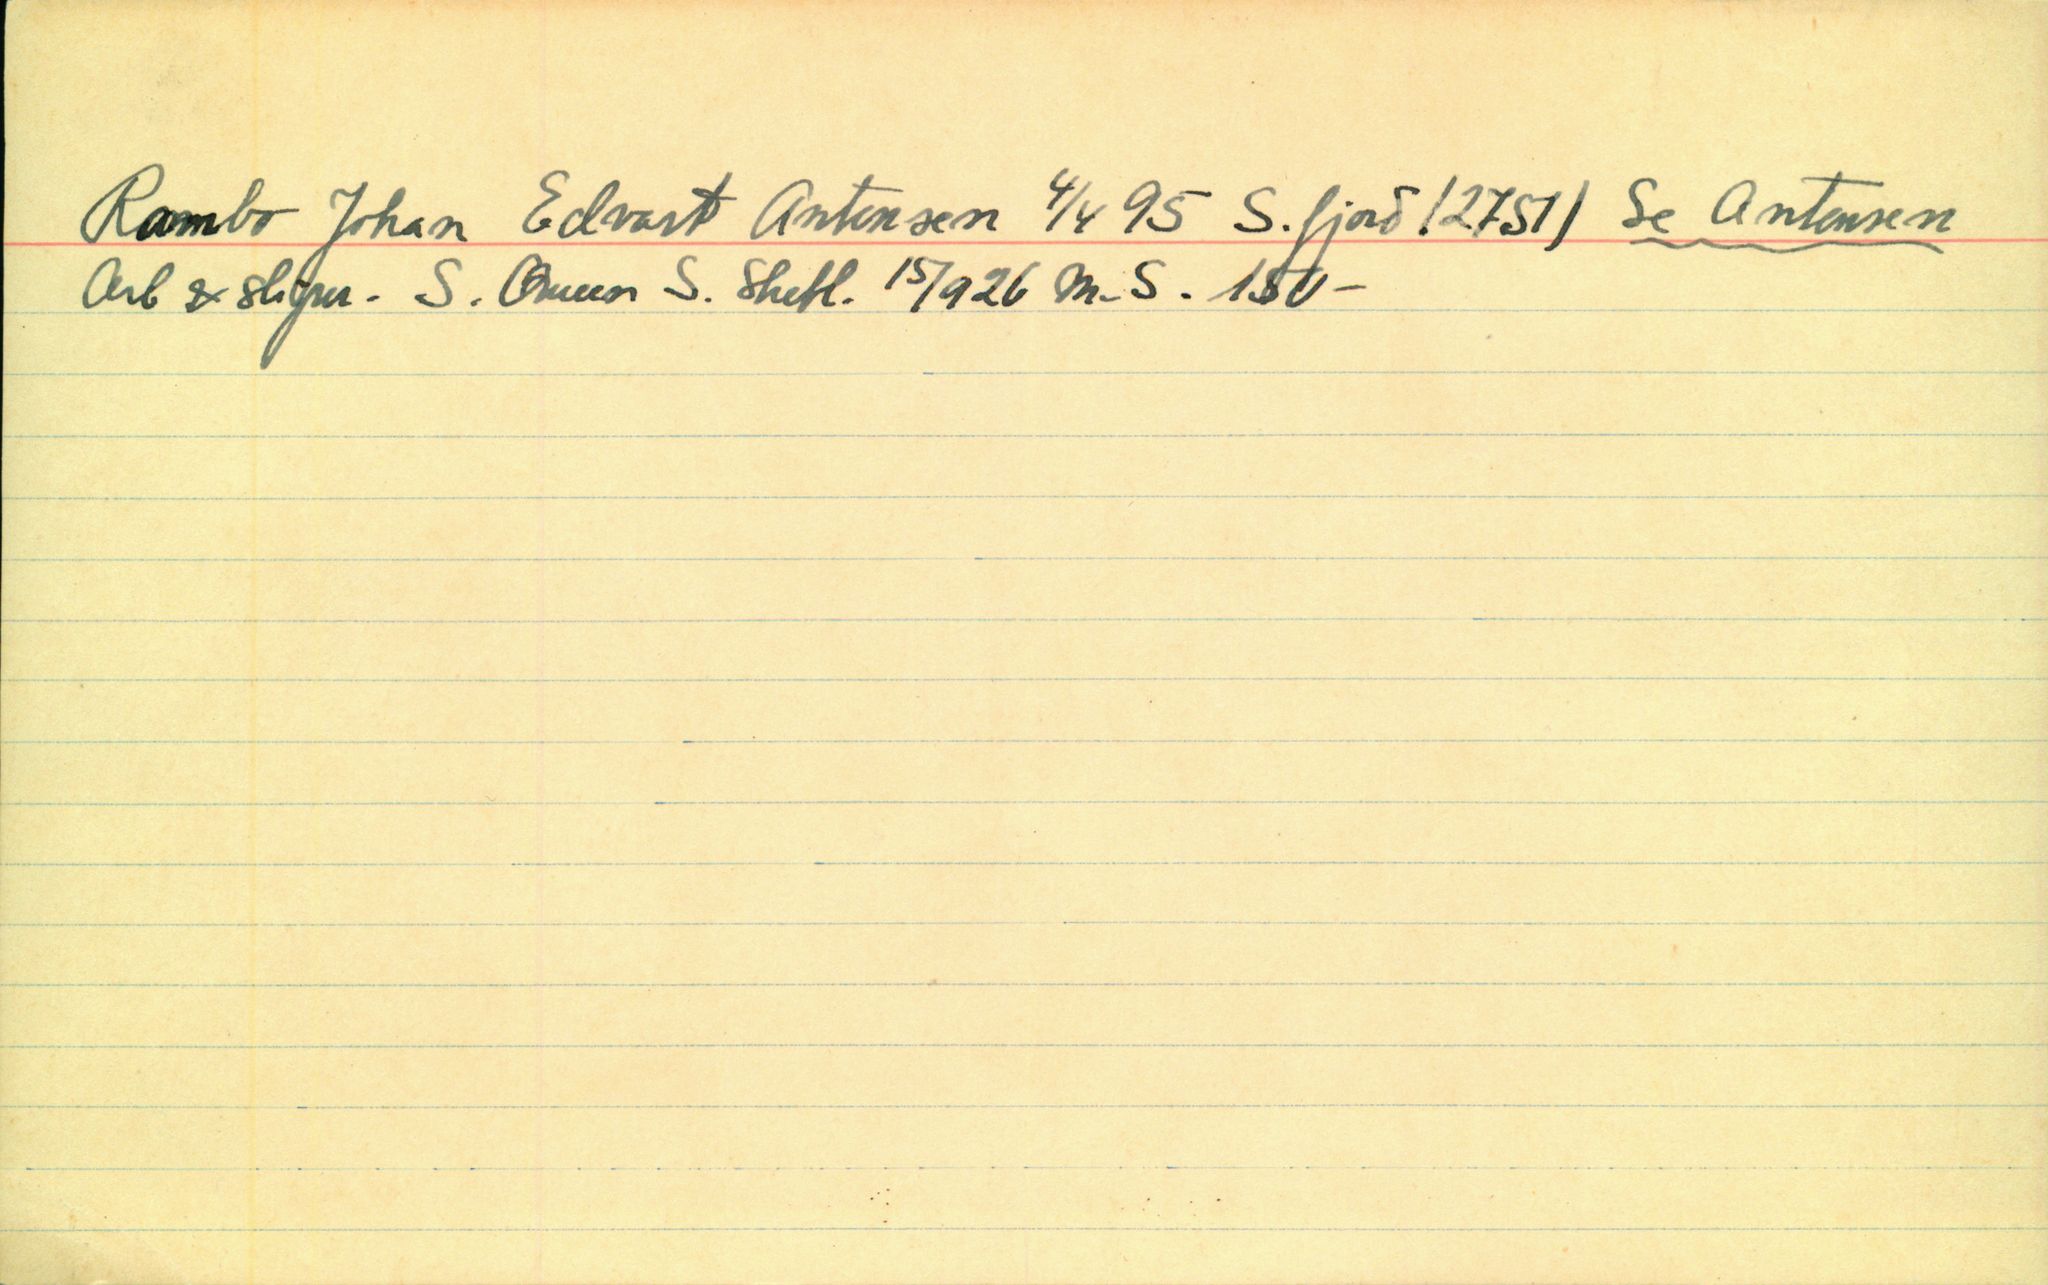 Rambo Johan Edvart Antonsen 4/4 95 S.fjord (2751) Se Antonsen
Arb & sliper. S. Queen S. Shetl. 15/926 M.S. 150-